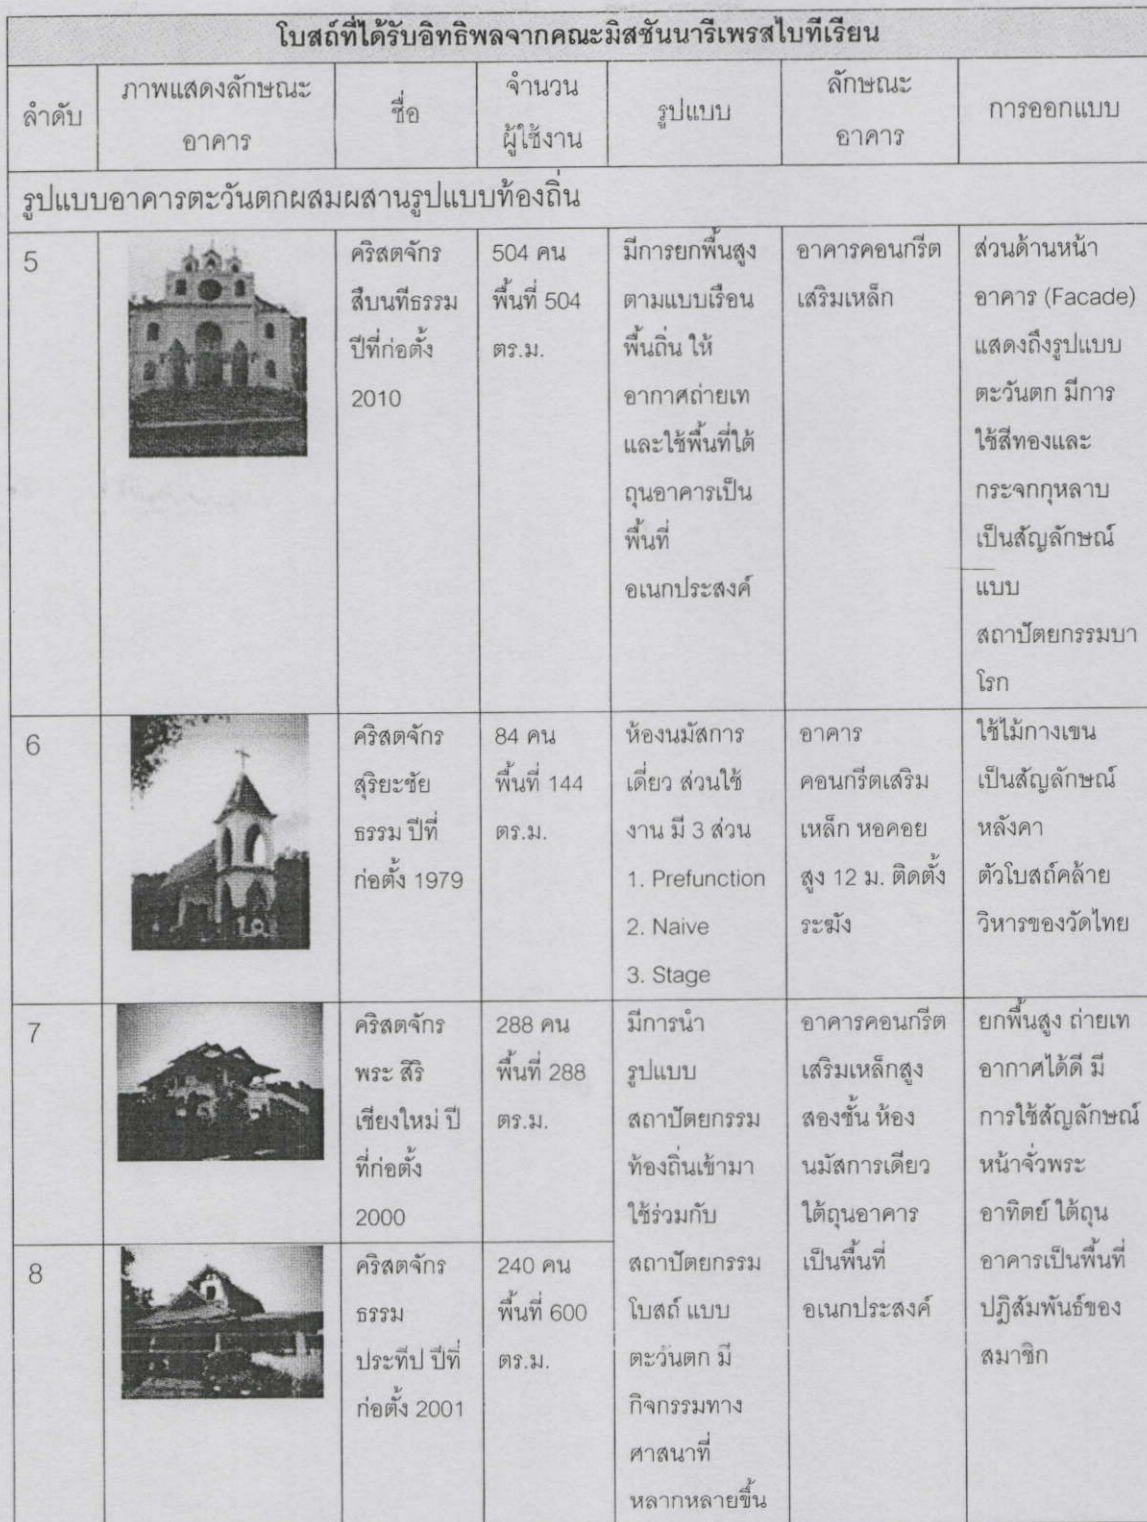 โบสถ์ที่ได้รับอิทธิพลจากคณะมิสชันนารีเพรสไบทีเรียน
ลำดับ
ภาพแสดงลักษณะ
อาคาร
ชื่อ
จำนวน
ผู้ใช้งาน
รูปแบบ
ลักษณะ
อาคาร
การออกแบบ
รูปแบบอาคารตะวันตกผสมผสานรูปแบบท้องถิ่น
5
คริสตจักร
สืบนทีธรรม
ปีที่ก่อตั้ง
2010
504 คน
พื้นที่ 504
ตร.ม.
มีการยกพื้นสูง
ตามแบบเรือน
พื้นถิ่น ให้
อากาศถ่ายเท
และใช้พื้นที่ใต้
ถุนอาคารเป็น
พื้นที่
อเนกประสงค์
อาคารคอนกรีต
เสริมเหล็ก
ส่วนด้านหน้า
อาคาร (Facade)
แสดงถึงรูปแบบ
ตะวันตก มีการ
ใช้สีทองและ
กระจกกุหลาบ
เป็นสัญลักษณ์
แบบ
สถาปัตยกรรมบา
โรก
6
คริสตจักร
สุริยะชัย
ธรรม ปีที่
ก่อตั้ง 1979
84 คน
พื้นที่ 144
ตร.ม.
ห้องนมัสการ
เดี่ยว ส่วนใช้
งาน มี 3 ส่วน
1. Prefunction
2. Naive
3. Stage
อาคาร
คอนกรีตเสริม
เหล็ก หอคอย
สูง 12 ม. ติดตั้ง
ระฆัง
ใช้ไม้กางเขน
เป็นสัญลักษณ์
หลังคา
ตัวโบสถ์คล้าย
วิหารของวัดไทย
7
คริสตจักร
พระ สิริ
เชียงใหม่ ปี
ที่ก่อตั้ง
2000
288 คน
พื้นที่ 288
ตร.ม.
มีการนำ
รูปแบบ
สถาปัตยกรรม
ท้องถิ่นเข้ามา
ใช้ร่วมกับ
สถาปัตยกรรม
โบสถ์ แบบ
ตะวันตก มี
กิจกรรมทาง
ศาสนาที่
หลากหลายขึ้น
อาคารคอนกรีต
เสริมเหล็กสูง
สองชั้น ห้อง
นมัสการเดียว
ใต้ถุนอาคาร
เป็นพื้นที่
อเนกประสงค์
ยกพื้นสูง ถ่ายเท
อากาศได้ดี มี
การใช้สัญลักษณ์
หน้าจั่วพระ
อาทิตย์ ใต้ถุน
อาคารเป็นพื้นที่
ปฏิสัมพันธ์ของ
สมาชิก
8
คริสตจักร
ธรรม
ประทีป ปีที่
ก่อตั้ง 2001
240 คน
พื้นที่ 600
ตร.ม.